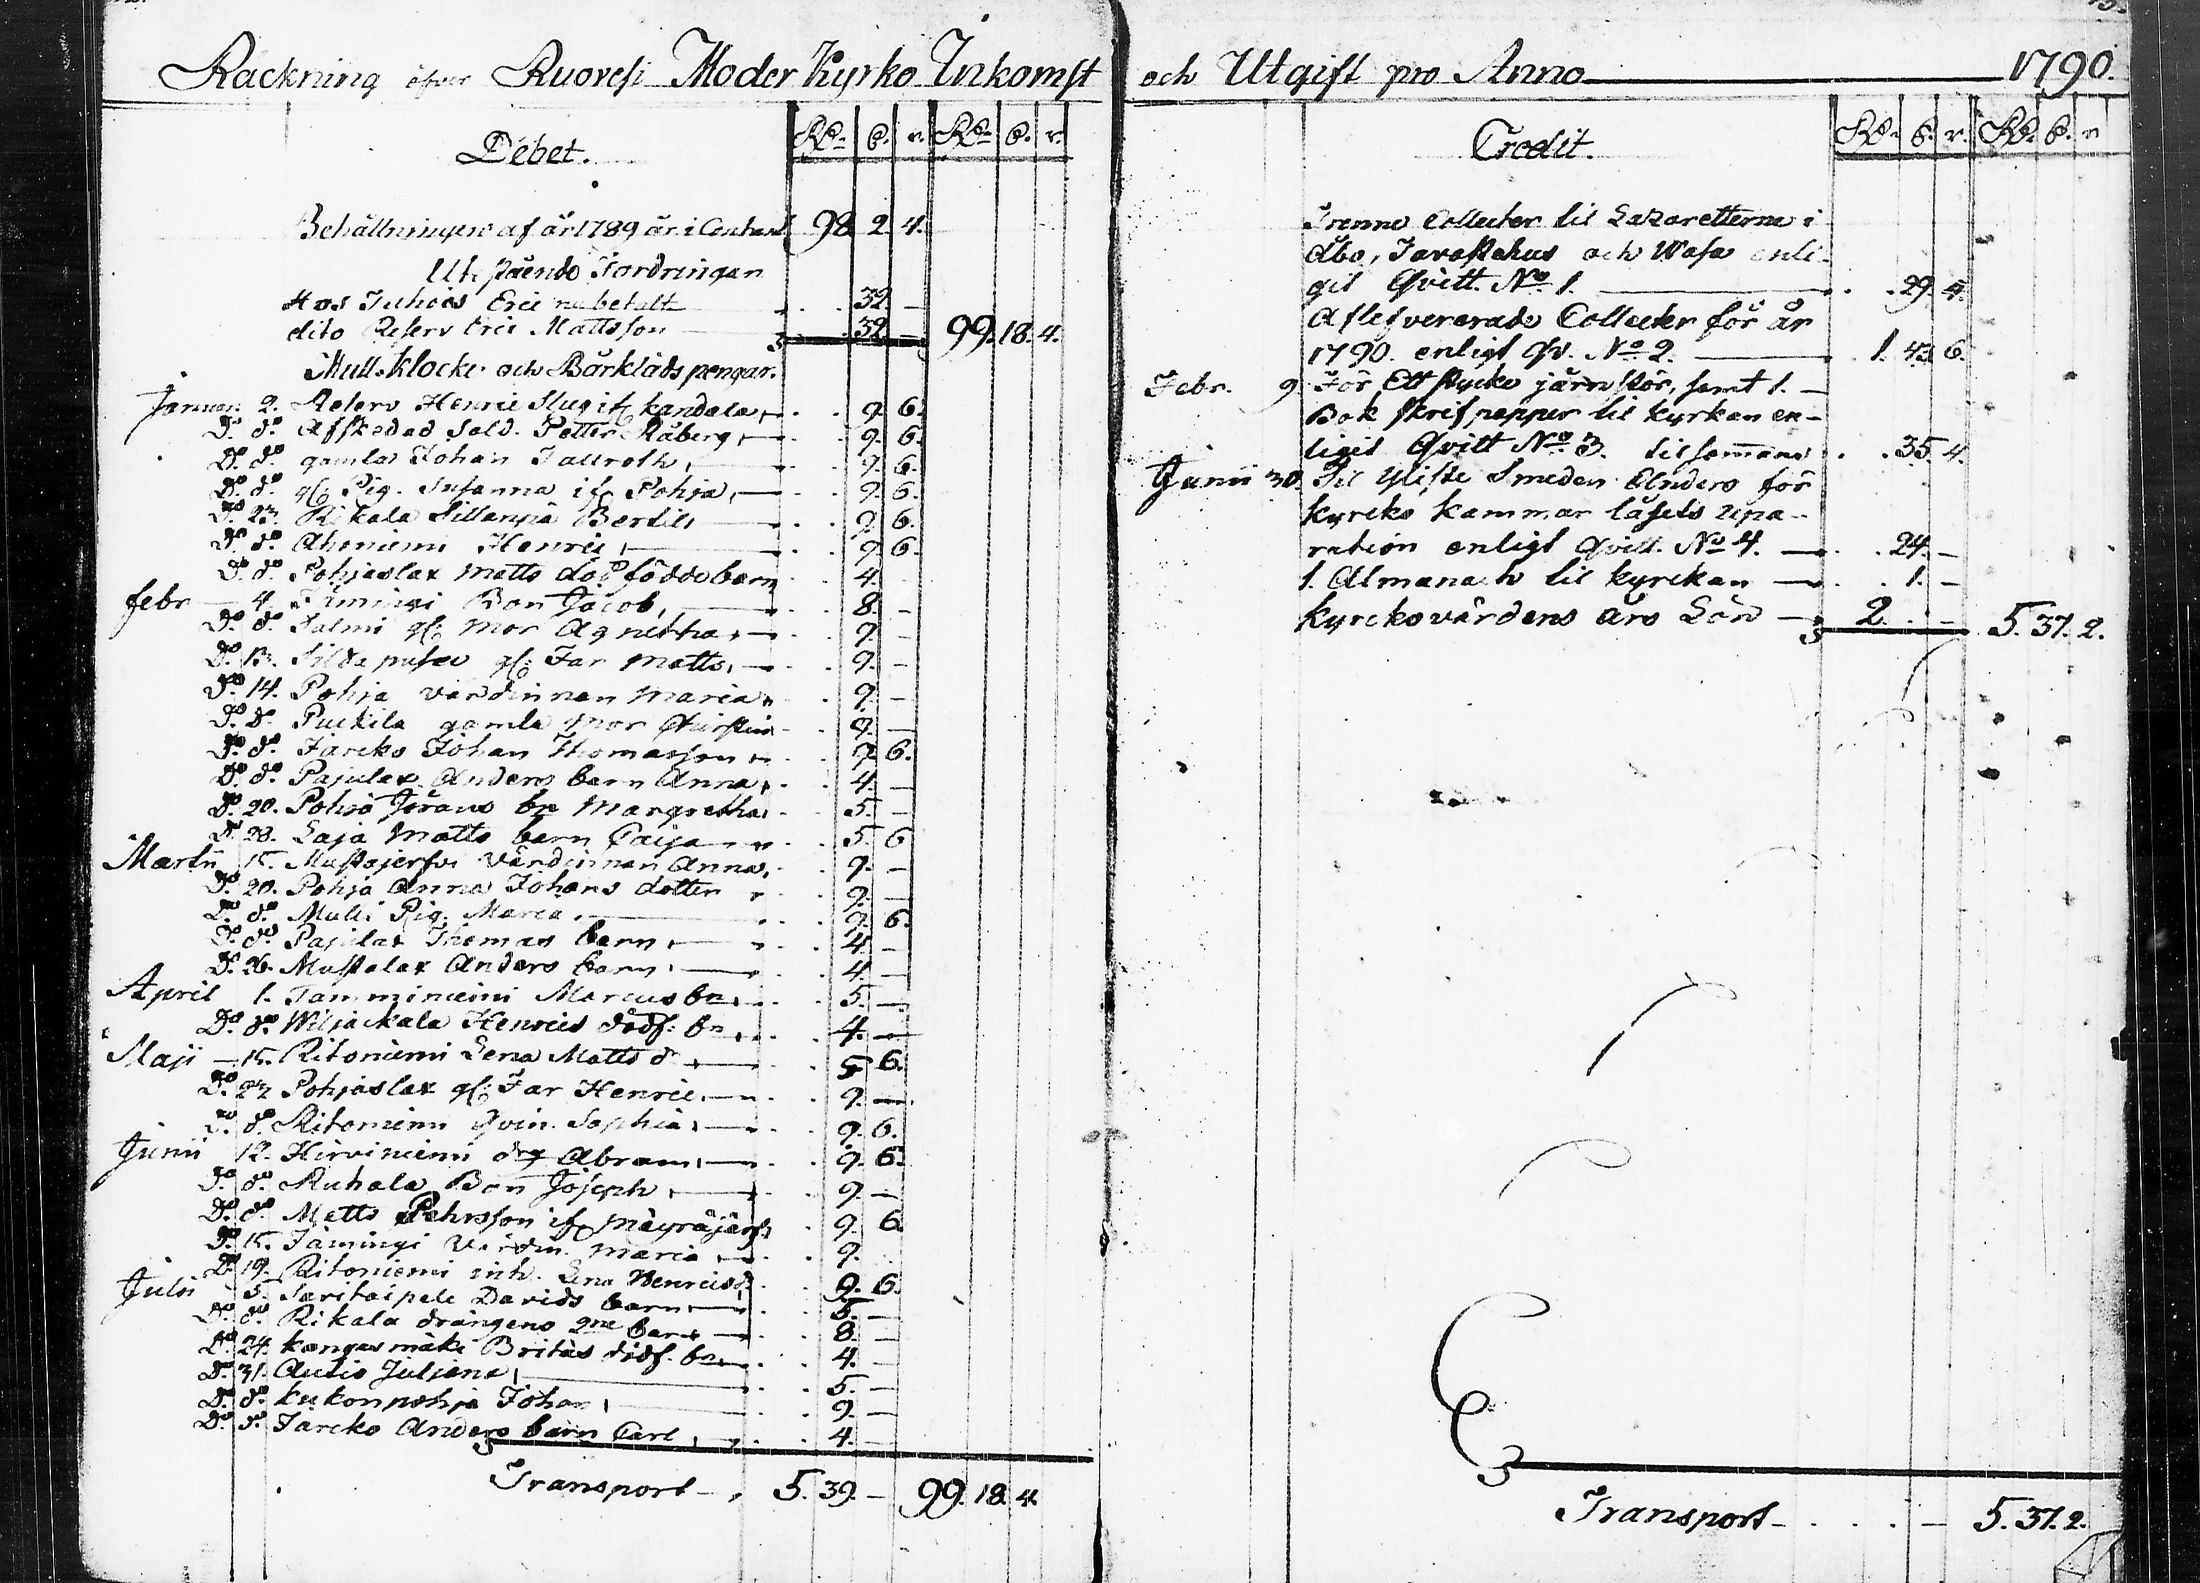 Räckning öfver Ruovesi Moder Kyrko Inkomst och Utgift pro Anno 1790.
Debet. Rd. ß. r. Rd. ß. r.
Behållningen af år 1789 är i Contant 98. 2. 4.
Utstående Fordringar
Hos Juhois Eric nu betalt . . 32. —
dito Reserv Eric Mattsson . . 32. — 99. 18. 4.
Mull- Klocke- och Bårklädspengar.
Januari 2. Reserv Henric Slug if kandala, . . 9. 6.
Do. do. Afskedad Sold. Petter Råberg, . . 9. 6.
Do. do. gamla Johan Tallroth, . . 9. 6.
Do. do. gl. Pig. Susanna if Pohja, . . 9. 6.
Do. 23. Rikala Sillanpä Bertil, . . 9. 6.
Do. do. Ahoniemi Henric, . . 9. 6.
Do. do. Pohjaslax Matts dödfödde barn . . 4.
febr — 4. Jämingi Bon Jacob, . . 8. —
Do. do. Salmi gl. mor Agnetha, . . 9. —
Do. 13. Sildapuseo gl. Far Matts, . . 9. —
Do. 14. Pohja värdinnan Maria . . 9. —
Do. Do. Puckila gamla mor Christin . . 9. —
Do. do. Järeko Johan Thomasson . . 9. 6.
Do. do. Pajulax Anders barn Anna, . . 4. —
Do. 20. Pohjo Jörans bn Margretha, . . 5. —
Do. 28. Laja Matts barn Caija . . 5. 6
Martii 15. Mustajerfvi Värdinnan Anna, . . 9. —
Do. 20. Pohja Anna Johans dotter . . 9. —
Do. do. Mulli Pig. Maria. . . 9. 6.
Do. do. Pajulax Thomas barn, . . 4. —
Do. 26. Mustalax Anders barn, . . 4. —
April 1. Tamminiemi Marcus bn, . . 5. —
Do. do. Wiljackala Henrics dödf. bn, . . 4. —
Maji — 15. Ritoniemi Lena Matts d. . . 5 6.
Do. 23 Pohjaslax gl. Far Henric, . . 9. —
Do. do. Ritoniemi Qvin. Sophia, . . 9. 6.
Junii 12. Hirviniemi drg Abram, . . 9. 6.
Do. do. Ruhala Bon Joseph . . 9. —
Do. do. Matts Pehrsson if Mäyräjärf, . . 9. 6
Do. 15. Jämingi Värdin. Maria . . 9.
Do. 19. Ritoniemi inh. Lena Henricsd. . . 9. 6.
Julii 5. Saritaipele Davids barn . . 5. —
Do. do. Rikala drängens 2ne barn . . 8. —
Do. 24. kangasmäki Britas dödf. bn . . 4. —
Do. 31. Autio Juliana, . . 5. —
Do. do. kukonpohja Johan, . . 9. —
Do. do. Jareko Anders barn Carl, . . 4. —
Transport — 5. 39. — 99. 18. 4.
Credit. Rd. ß. r. Rd. ß. r
Trenne Collecter til Lazaretterne i
Åbo, Tavastehus och Wasa enli-
git Qvitt. No. 1. — . 29. 4.
Aflefvererade Collecter för år
1790. enligt Qv. No. 2. — 1. 43. 6.
Febr. 9. För Ett stycke järn stör, samt 1.
Bok skrifpapper til kyrkan en-
ligit Qvitt No. 3. tilsammans . . 35. 4.
Junii 30. Til Yliste Smeden Anders för
kyrcko kammar låsets repa-
ration enligt Qvitt. No. 4. — . . 24. —
1. Almanach til kyrckan — . . 1. —
kyrckovärdens års Lön — 2. . — 5. 37. 2.
Transport — . . . — 5. 37. 2.